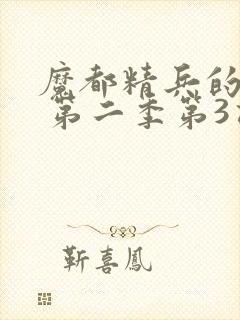 魔都精兵的
第二季第3
靳喜鳳